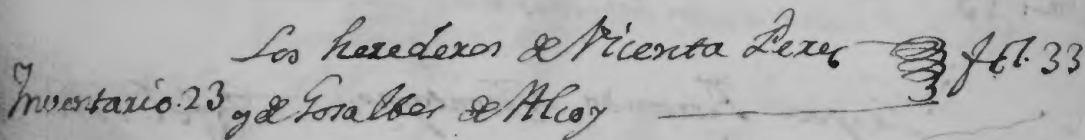 Los herederos de Vicenta Perez fol. 33
Inventario. 23 y de Gosalbes de Alcoy